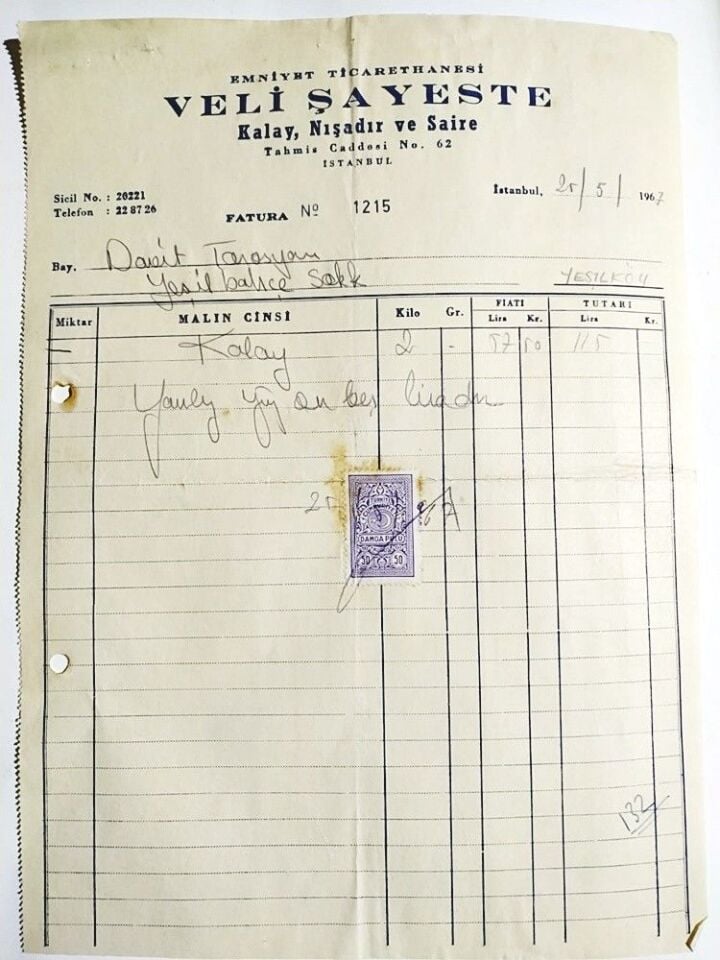 EMNİYET TİCARETHANESİ
VELİ ŞAYESTE
Kalay, Nışadır ve Saire
Tahmis Caddesi No. 62
İSTANBUL
Sicil No. : 20221
Telefon : 22 87 26
FATURA Nº 1215
İstanbul, 25/5/ 1967
Bay.
Yeşil bahçe Sokk
YEŞİLKÖY
Miktar MALIN CİNSİ Kilo Gr. FIATI Lira Kr. TUTARI Lira Kr.
Kalay 2 - 57 50 115
Yalnız Yüz on beş liradır
25 967
DAMGA PULU
50 50
132